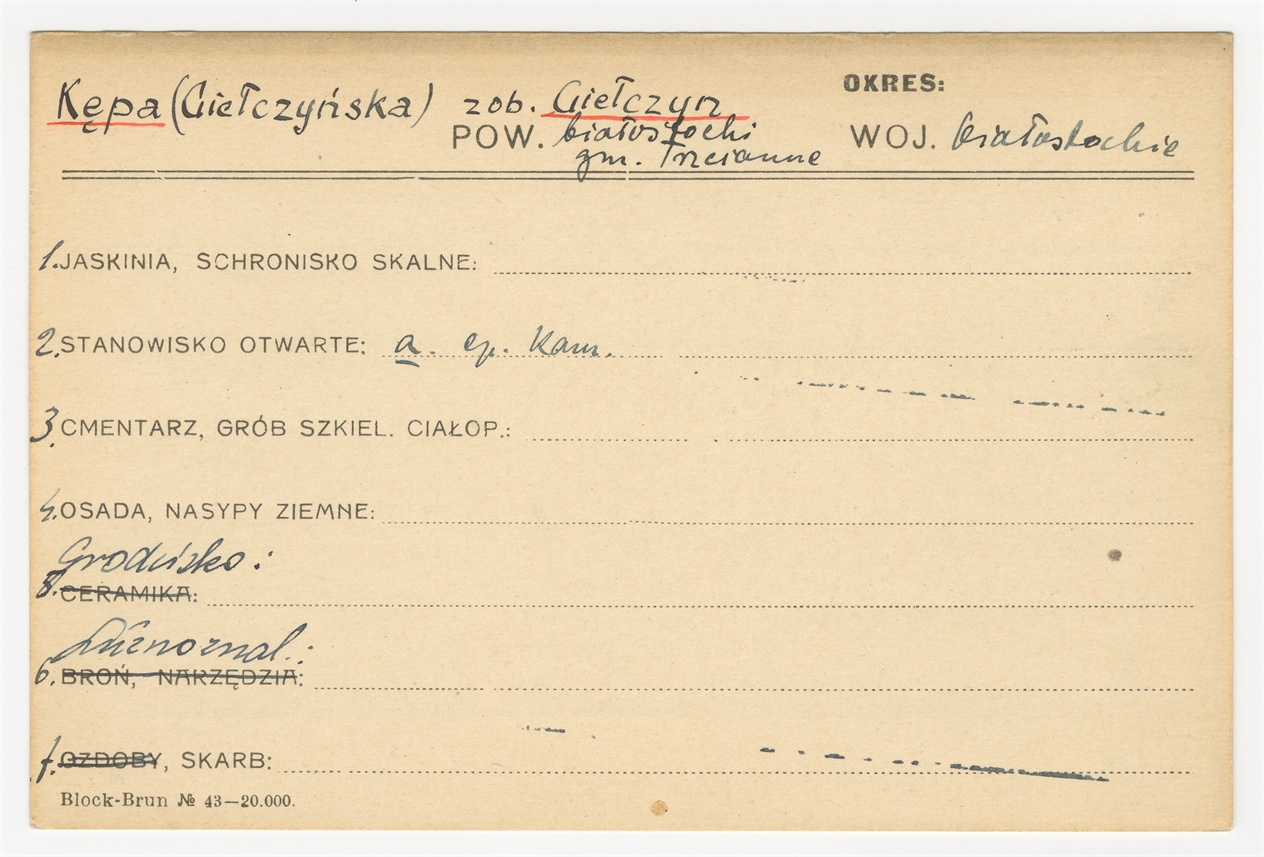 Kępa (Giełczyńska) zob. Giełczyn OKRES:
POW. białostocki WOJ. białostockie
gm. Trzcianne
1. JASKINIA, SCHRONISKO SKALNE:
2. STANOWISKO OTWARTE: a. ep. Kam.
3. CMENTARZ, GRÓB SZKIEL. CIAŁOP.:
4. OSADA, NASYPY ZIEMNE:
Grodzisko:
5. CERAMIKA:
Luźno znal.:
6. BROŃ, NARZĘDZIA:
7. OZDOBY, SKARB:
Block-Brun № 43—20.000.